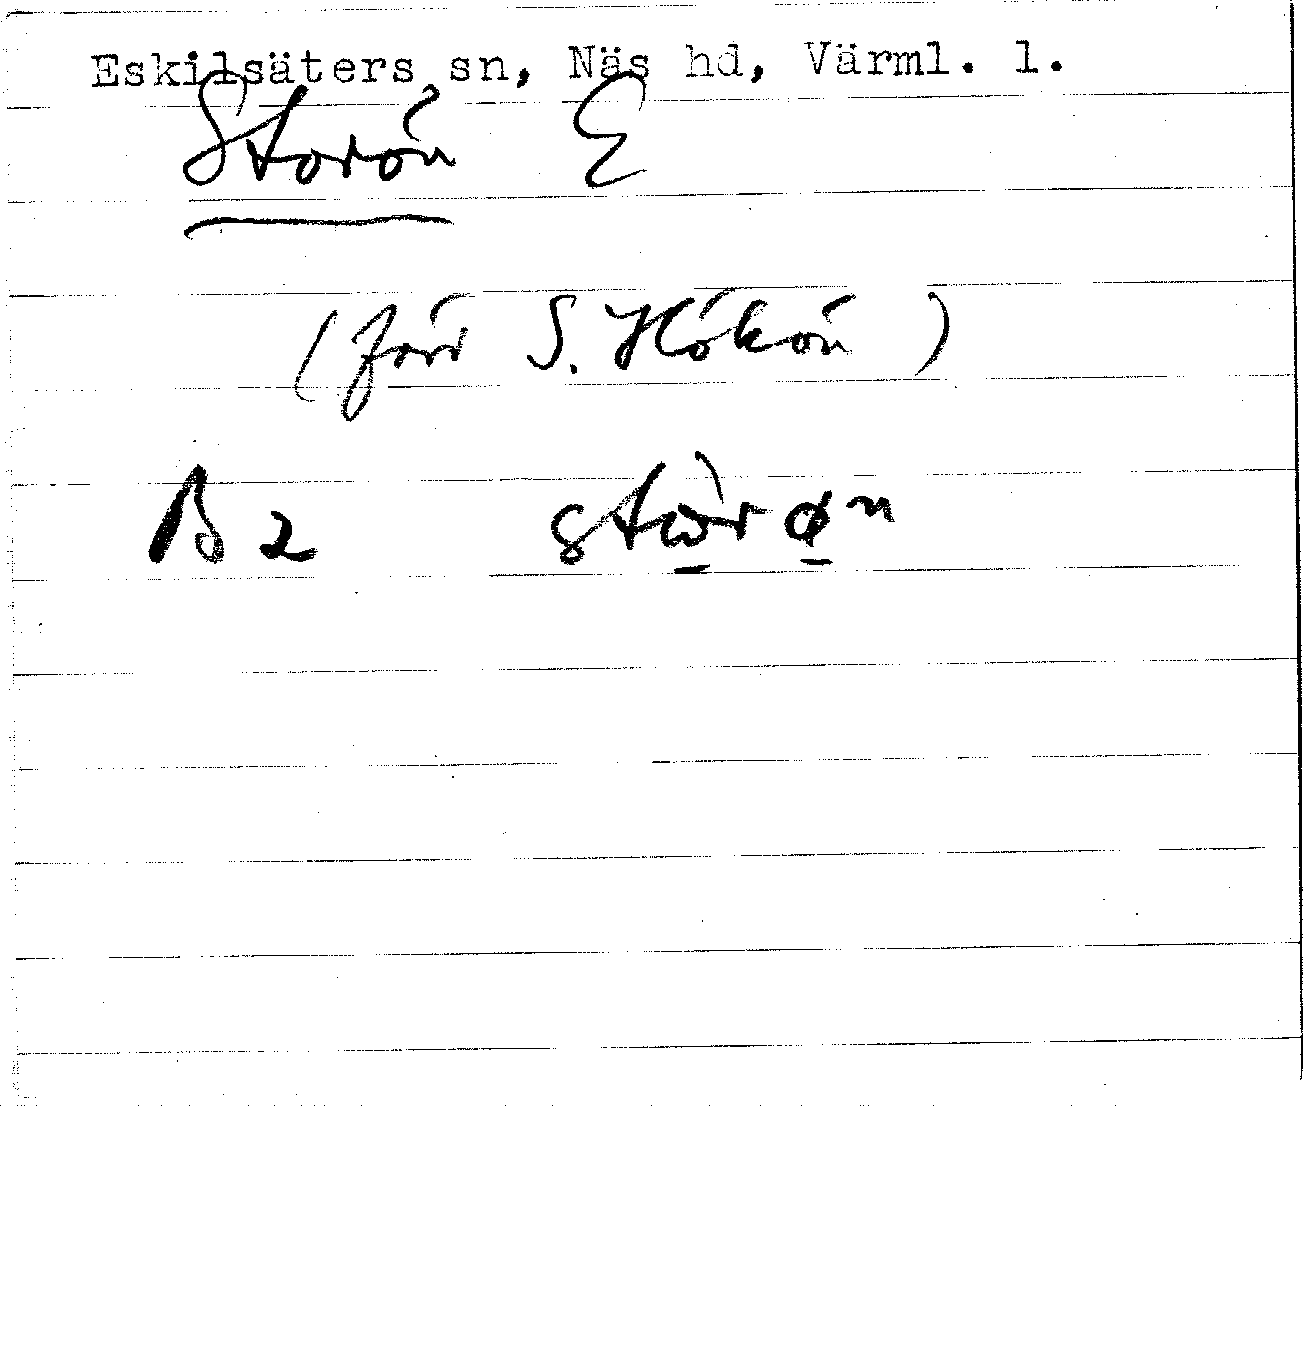 Eskilsäters sn, Näs hd, Värml. l.
Storön E
(förr S. Hökön)
B 2 stωrøn